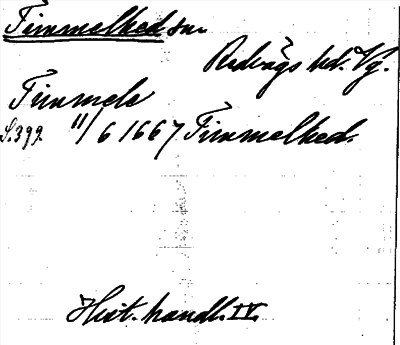 Timmelhed sn.
Redvägs hd. Vg.
Timmele
S. 399. 11/6 1667 Timmelhed.
Hist. handl. IV.